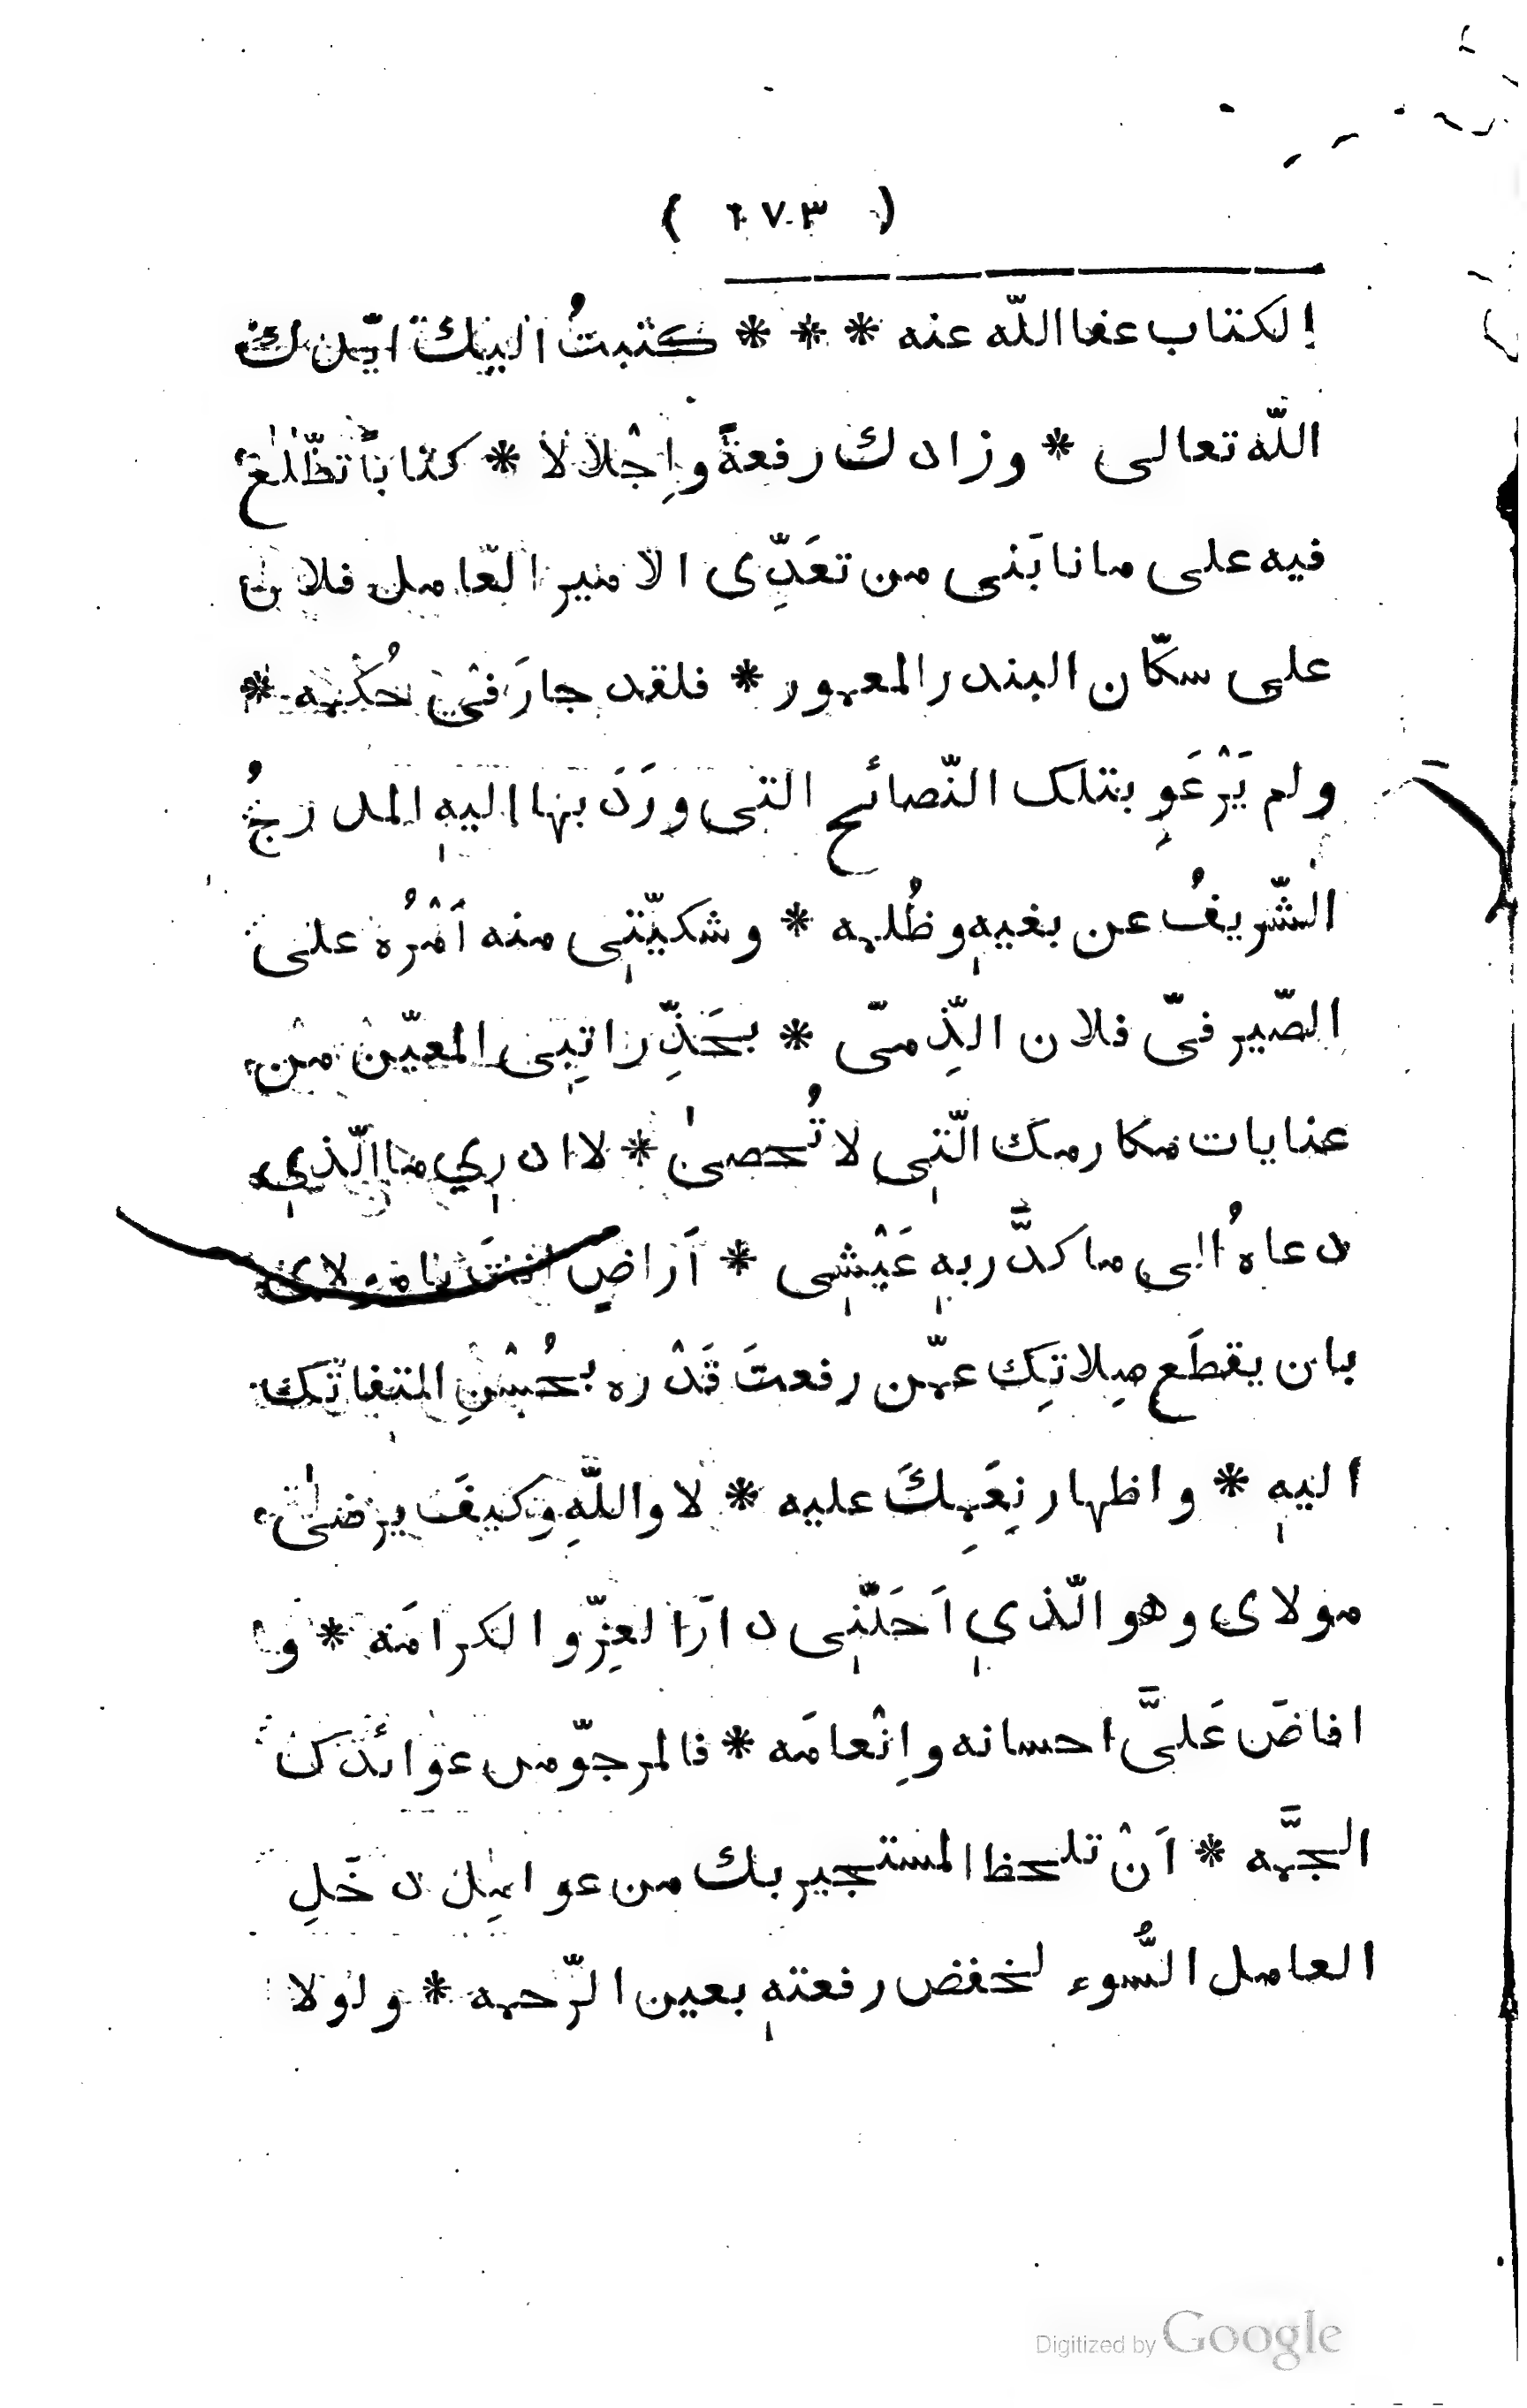 ( ٢٧٣ )
الكتاب عفا اللّه عنه * * * كتبتُ اليك ايّدك
اللّه تعالى * وزادك رفعةً واِجْلالا * كتابًا تطّلع
فيه على ما نابَنى من تعَدِّى الامير العامل فلان
على سكّان البندر المعمور * فلقد جارَ فى حُكْمه *
ولم يَرْعَوِ بتلك النّصائح التى ورَدَ بها اليه المدرجُ
الشّريفُ عن بغيه وظُلمه * وشكيّتى منه اَمْرُه على
الصّيرفىّ فلان الذِّمىّ * بحَذِّ راتِبى المعيّن من
عنايات مكارمك الّتى لا تُحصىٰ * لا ادري ما الّذي
دعاهُ الي ما كدَّر به عَيْشى * اَراضٍ انتَ يا مولاى
بان يقطَع صِلاتِك عمّن رفعتَ قَدْره بحُسْنِ التفاتك
اليه * واظهار نِعَمِكَ عليه * لا واللّهِ وكيفَ يرضىٰ
مولاى وهو الّذي اَحَلَّنى دارَ العِزّ والكرامَه * و
افاضَ عَلىَّ احسانه واِنْعامَه * فالمرجوّ من عوائدك
الجمَّه * اَنْ تلحظ المستجير بك من عوامِل دَخَلِ
العامل السُّوء لخفض رفعته بعين الرّحمه * ولولا
Digitized by Google